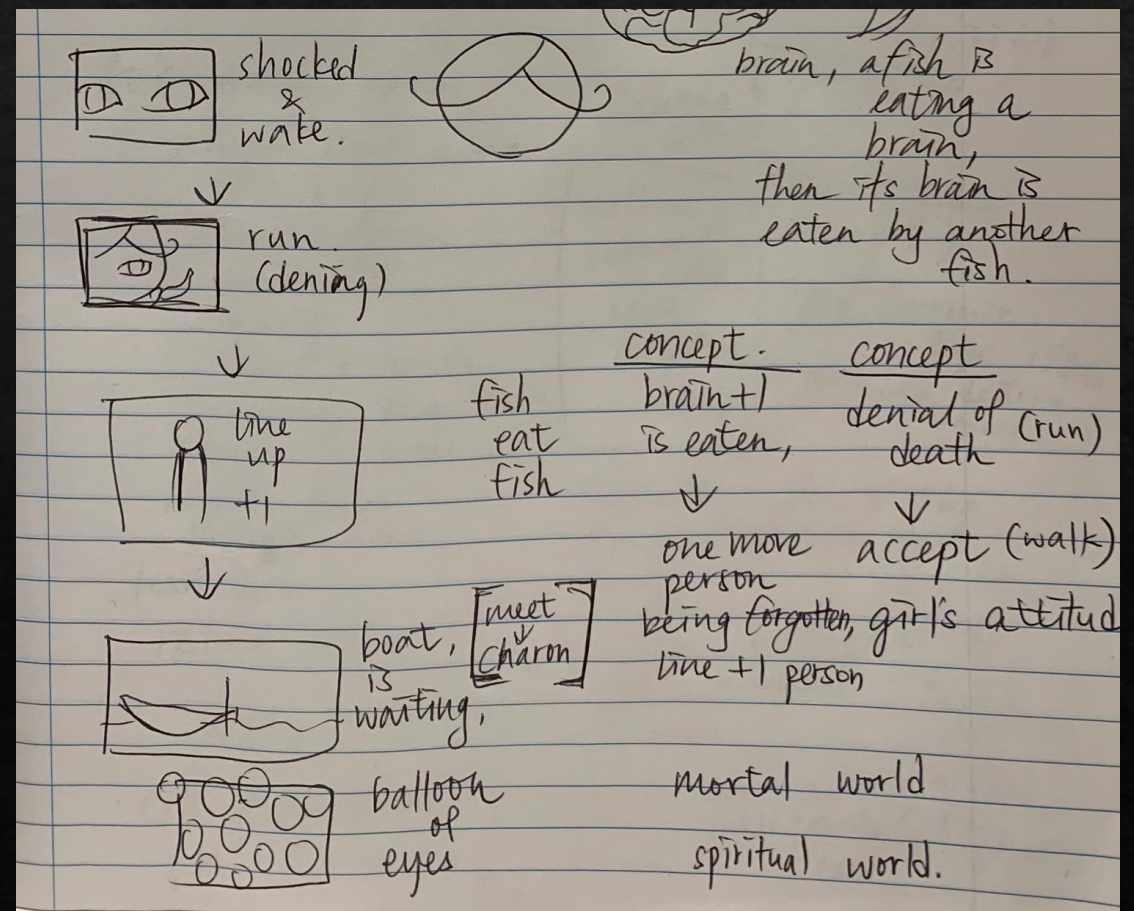 shocked
&
wake.
run.
(dening)
line
up
+1
boat,
is
waiting,
[meet
Charon]
balloon
of
eyes
brain, a fish is
eating a
brain,
then its brain is
eaten by another
fish.
fish
eat
fish
concept.
brain+1
is eaten,
one more
person
being forgotten,
line +1 person
concept
denial of (run)
death
accept (walk)
girl's attitud
mortal world
spiritual world.